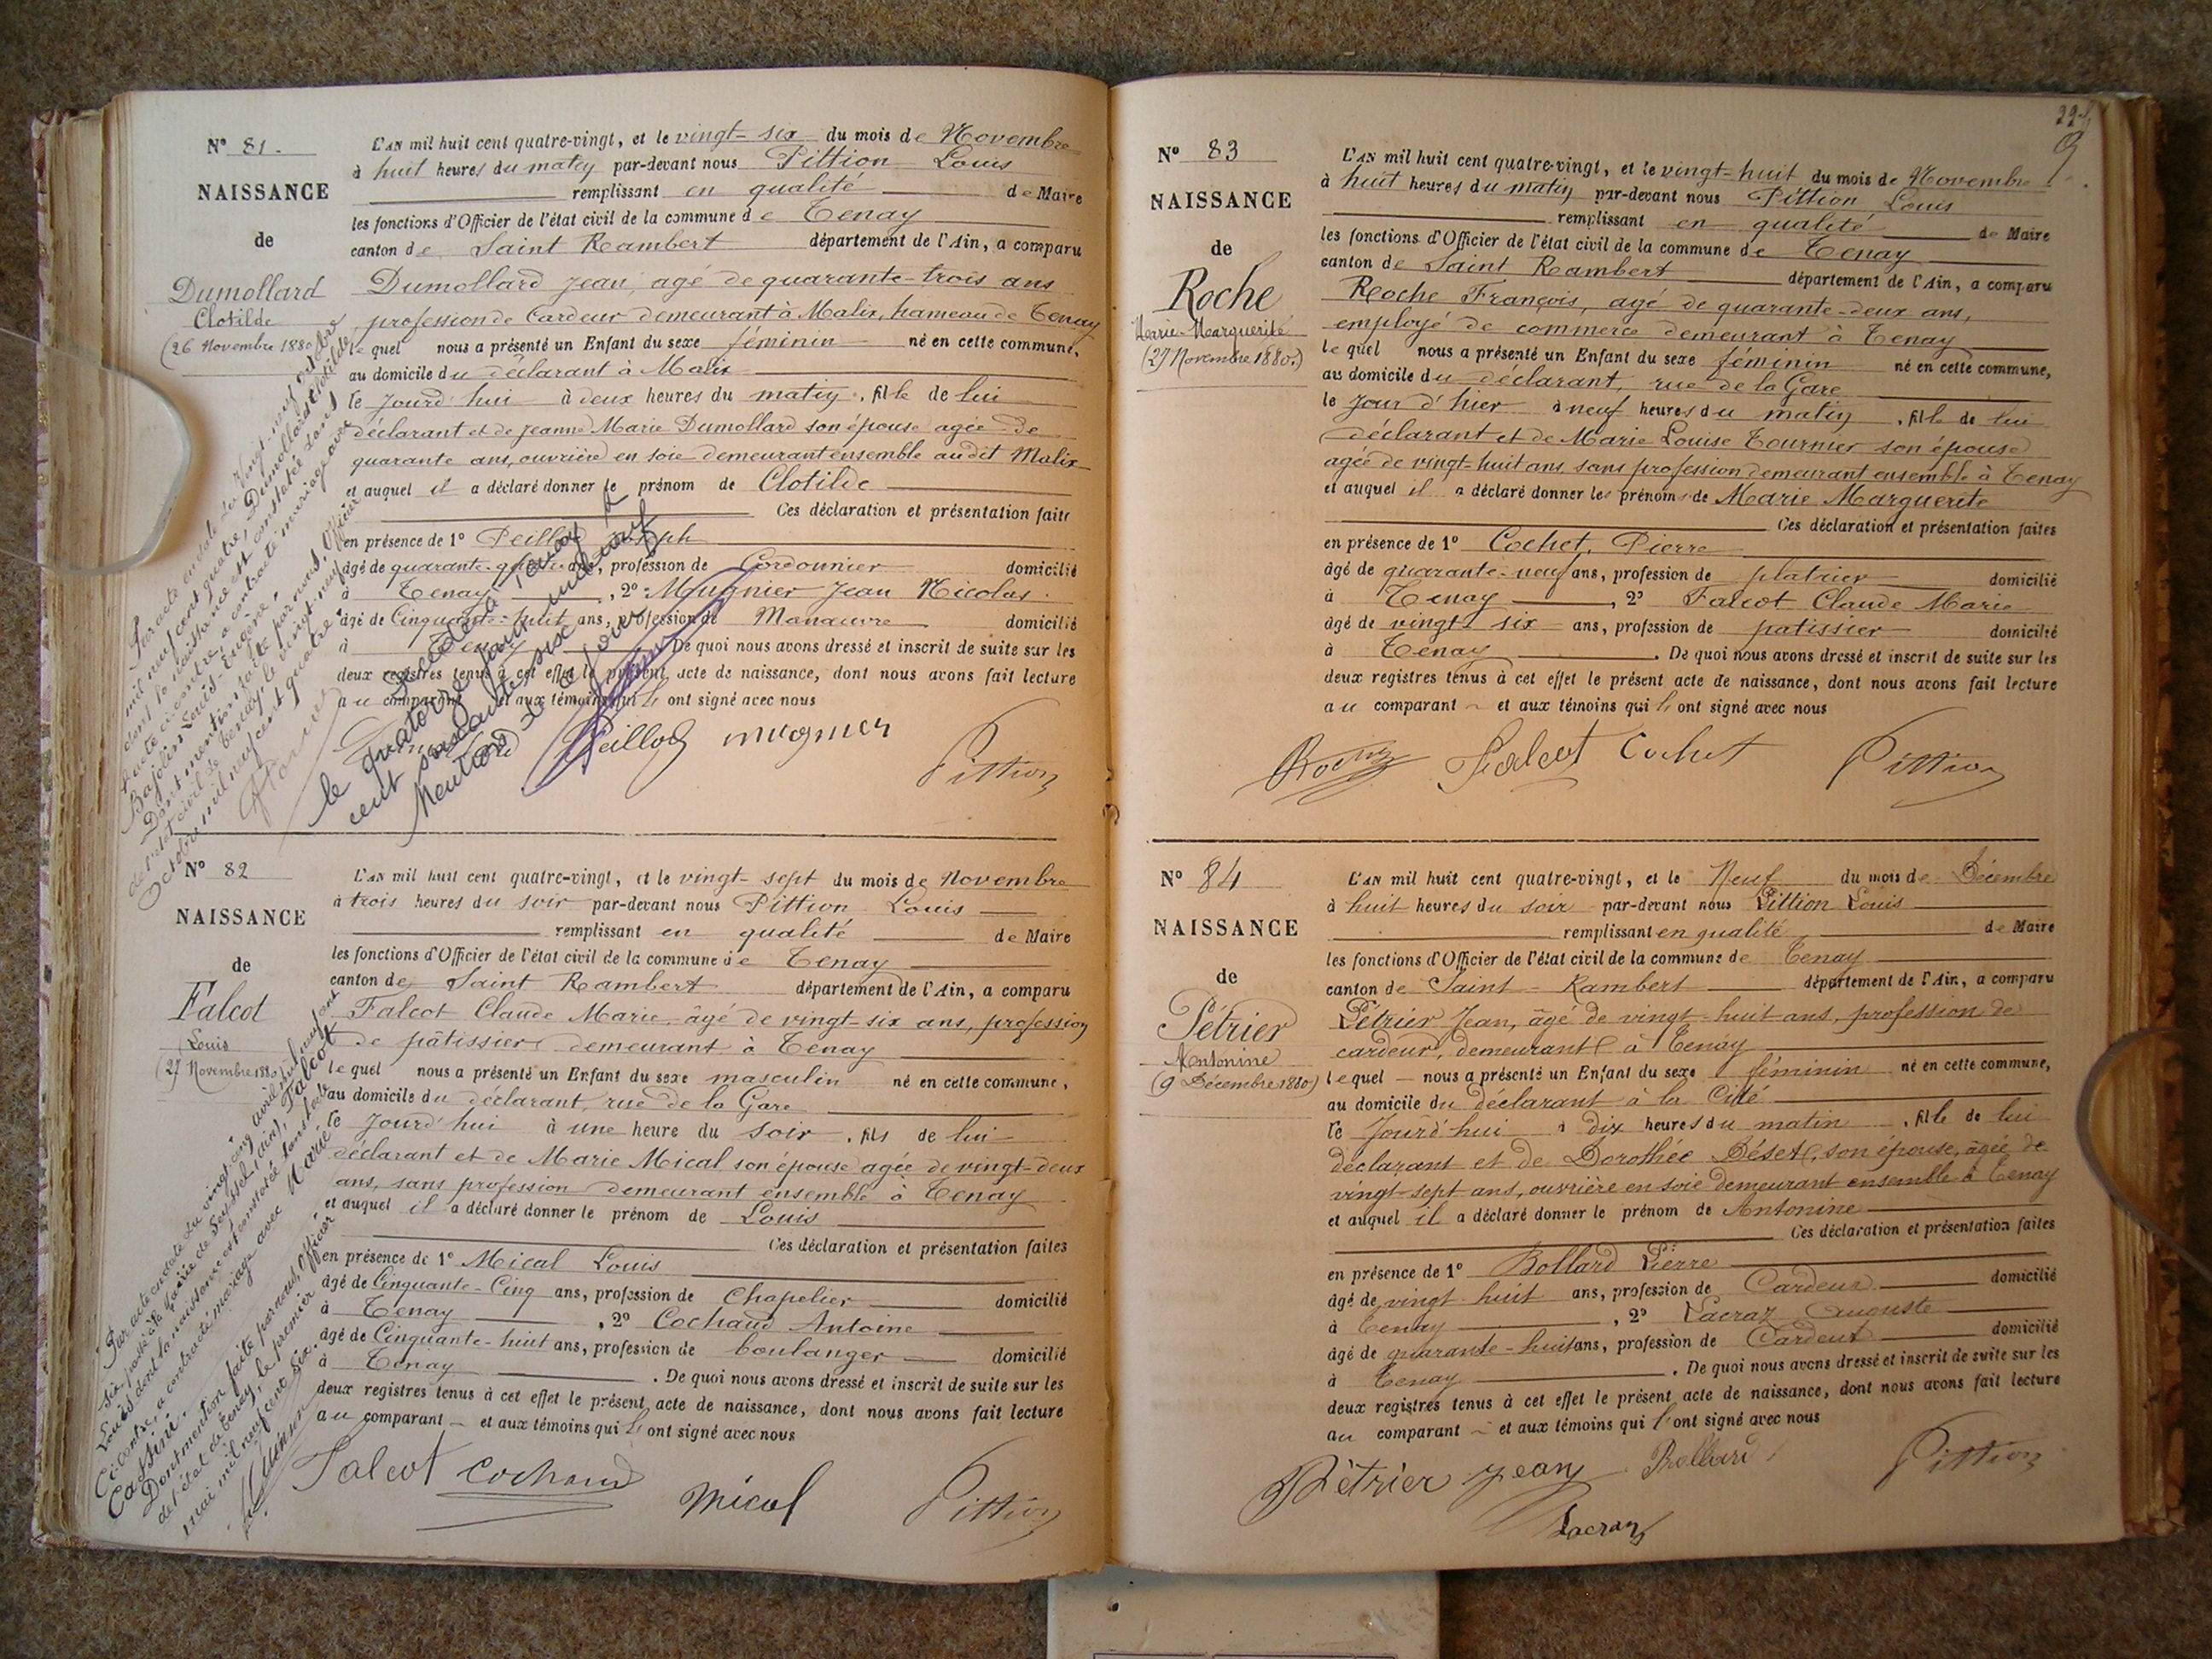 N° 81
NAISSANCE
de
Dumollard
Clotilde
(26 Novembre 1880)
L'AN mil huit cent quatre-vingt, et le vingt-six du mois de Novembre
à huit heures du matin par-devant nous Pittion Louis
remplissant en qualité de Maire
les fonctions d'Officier de l'état civil de la commune de Tenay
canton de Saint Rambert département de l'Ain, a comparu
Dumollard Jean, agé de quarante-trois ans
profession de Cardeur demeurant à Malix, hameau de Tenay
lequel nous a présenté un Enfant du sexe féminin né en cette commune,
au domicile du déclarant à Malix
le Jourd'hui à deux heures du matin, fille de lui
déclarant et de Jeanne Marie Dumollard son épouse agée de
quarante ans, ouvrière en soie demeurant ensemble audit Malix
et auquel il a déclaré donner le prénom de Clotilde
Ces déclaration et présentation faites
en présence de 1° Peillod Joseph
âgé de quarante ans, profession de Cordonnier domicilié
à Tenay, 2° Mugnier Jean Nicolas
âgé de Cinquante-huit ans, profession de Manœuvre domicilié
à Tenay. De quoi nous avons dressé et inscrit de suite sur les
deux registres tenus à cet effet le présent acte de naissance, dont nous avons fait lecture
au comparant et aux témoins qui l'ont signé avec nous
Peillod mugnier Pittion
Par acte en date du vingt-neuf octobre
mil neuf cent quatre, Dumollard Clotilde
dont la naissance est constatée dans
l'acte ci-contre, a contracté mariage avec
Bajolin Louis-Eugène.
Dont mention faite par nous Officier
de l'état civil de Tenay, le vingt-neuf
Octobre mil neuf cent quatre
Décédée à Tenay
le quatorze juin mil neuf
cent soixante six
N° 82
NAISSANCE
de
Falcot
Louis
(27 Novembre 1880)
L'AN mil huit cent quatre-vingt, et le vingt-sept du mois de Novembre
à trois heures du soir par-devant nous Pittion Louis
remplissant en qualité de Maire
les fonctions d'Officier de l'état civil de la commune de Tenay
canton de Saint Rambert département de l'Ain, a comparu
Falcot Claude Marie, âgé de vingt-six ans, profession
de pâtissier demeurant à Tenay
lequel nous a présenté un Enfant du sexe masculin né en cette commune,
au domicile du déclarant, rue de la Gare
le Jourd'hui à une heure du soir, fils de lui
déclarant et de Marie Mical son épouse agée de vingt-deux
ans, sans profession demeurant ensemble à Tenay
et auquel il a déclaré donner le prénom de Louis
Ces déclaration et présentation faites
en présence de 1° Mical Louis
âgé de Cinquante-Cinq ans, profession de Chapelier domicilié
à Tenay, 2° Cochaud Antoine
âgé de Cinquante-huit ans, profession de boulanger domicilié
à Tenay. De quoi nous avons dressé et inscrit de suite sur les
deux registres tenus à cet effet le présent acte de naissance, dont nous avons fait lecture
au comparant et aux témoins qui l'ont signé avec nous
Falcot Cochaud Mical Pittion
Par acte en date du vingt-cinq avril mil neuf cent
six, passé à la Mairie de Seyssel (Ain), Falcot
Louis dont la naissance est constatée dans l'acte
ci-contre, a contracté mariage avec Marie
Dont mention faite par nous, Officier
de l'état de Tenay, le premier
mai mil neuf cent six.
N° 83
NAISSANCE
de
Roche
Marie-Marguerite
(27 Novembre 1880.)
L'AN mil huit cent quatre-vingt, et le vingt-huit du mois de Novembre
à huit heures du matin par-devant nous Pittion Louis
remplissant en qualité de Maire
les fonctions d'Officier de l'état civil de la commune de Tenay
canton de Saint Rambert département de l'Ain, a comparu
Roche François, agé de quarante-deux ans,
employé de commerce demeurant à Tenay
lequel nous a présenté un Enfant du sexe féminin né en cette commune,
au domicile du déclarant, rue de la Gare
le Jour d'hier à neuf heures du matin, fille de lui
déclarant et de Marie Louise Tournier son épouse
agée de vingt-huit ans, sans profession demeurant ensemble à Tenay
et auquel il a déclaré donner les prénoms de Marie Marguerite
Ces déclaration et présentation faites
en présence de 1° Cochet, Pierre
âgé de quarante-neuf ans, profession de platrier domicilié
à Tenay, 2° Falcot Claude Marie
âgé de vingt-six ans, profession de patissier domicilié
à Tenay. De quoi nous avons dressé et inscrit de suite sur les
deux registres tenus à cet effet le présent acte de naissance, dont nous avons fait lecture
au comparant et aux témoins qui l'ont signé avec nous
Roche Falcot Cochet Pittion
N° 84
NAISSANCE
de
Pétrier
Antonine
(9 Décembre 1880)
L'AN mil huit cent quatre-vingt, et le Neuf du mois de Décembre
à huit heures du soir par-devant nous Pittion Louis
remplissant en qualité de Maire
les fonctions d'Officier de l'état civil de la commune de Tenay
canton de Saint-Rambert département de l'Ain, a comparu
Pétrier Jean, âgé de vingt-huit ans, profession de
cardeur, demeurant à Tenay
lequel nous a présenté un Enfant du sexe féminin né en cette commune,
au domicile du déclarant à la Cité
le Jourd'hui à dix heures du matin, fille de lui
déclarant et de Dorothée Déset, son épouse, âgée de
vingt-sept ans, ouvrière en soie demeurant ensemble à Tenay
et auquel il a déclaré donner le prénom de Antonine
Ces déclaration et présentation faites
en présence de 1° Bollard Pierre
âgé de vingt huit ans, profession de Cardeur domicilié
à Tenay, 2° Lacraz Auguste
âgé de quarante-huit ans, profession de Cardeur domicilié
à Tenay. De quoi nous avons dressé et inscrit de suite sur les
deux registres tenus à cet effet le présent acte de naissance, dont nous avons fait lecture
au comparant et aux témoins qui l'ont signé avec nous
Pétrier Jean Bollard Pittion
Lacraz